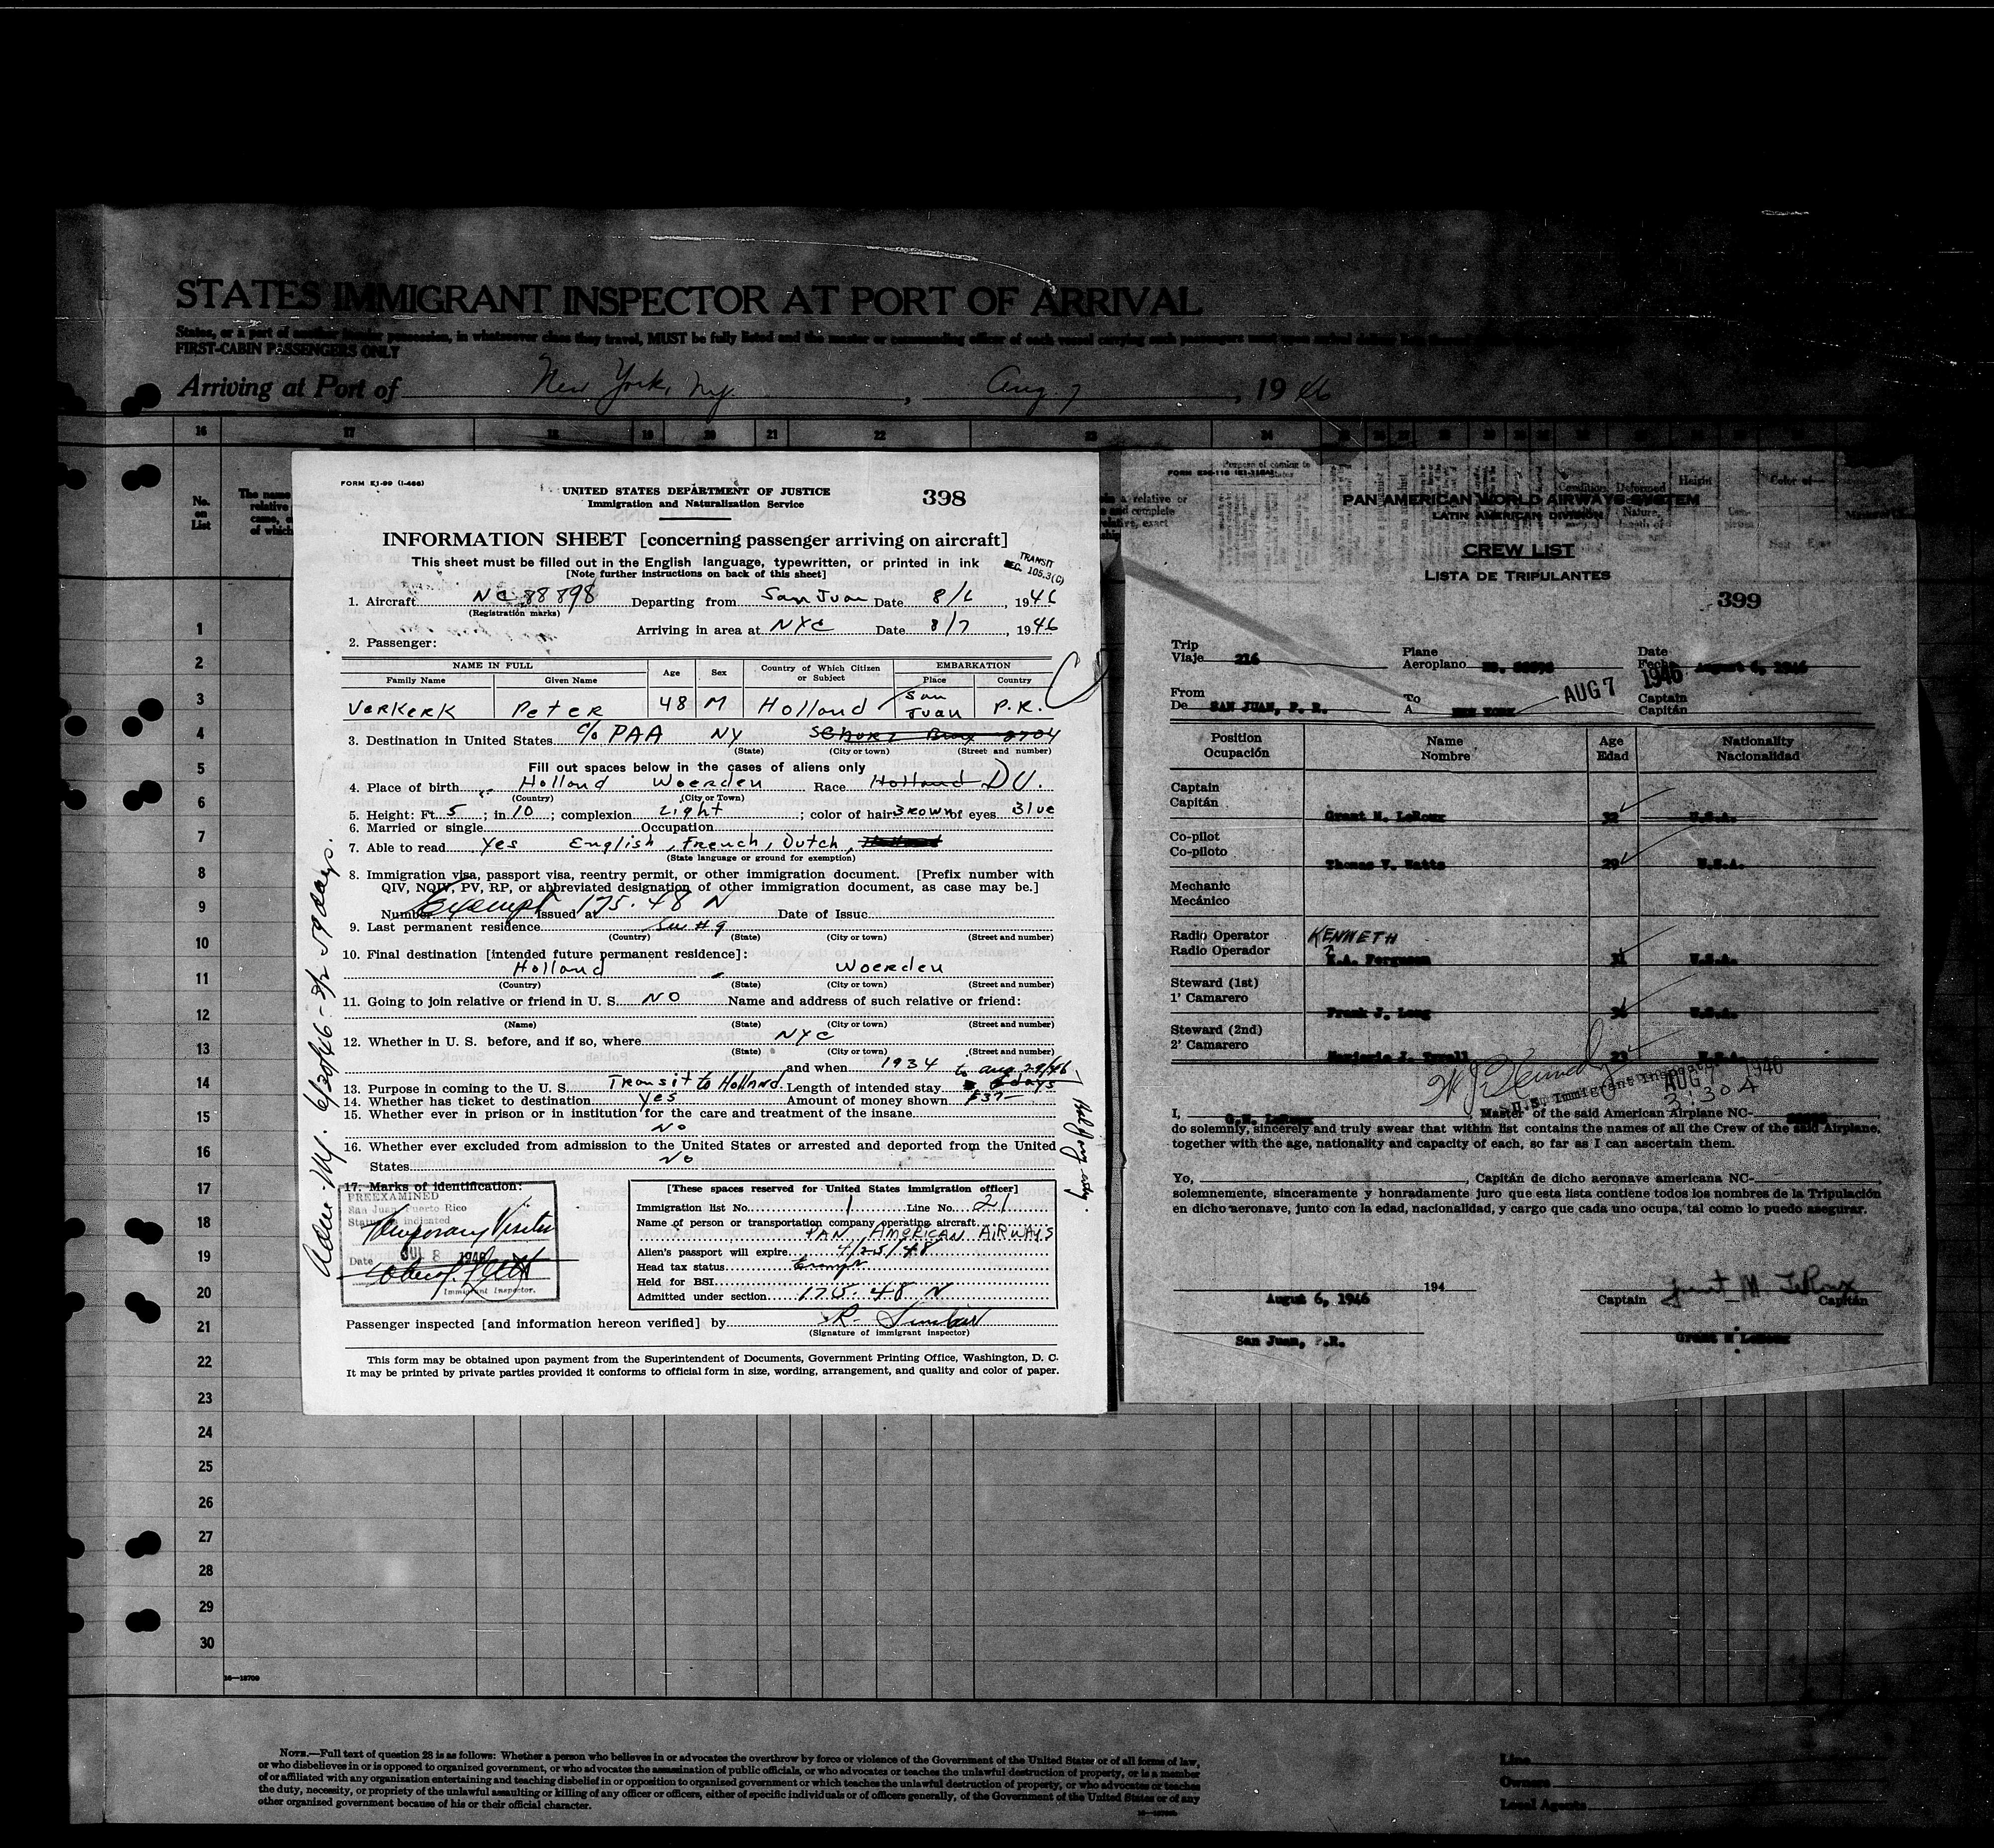 STATES IMMIGRANT INSPECTOR AT PORT OF ARRIVAL
FIRST-CABIN PASSENGERS ONLY
Arriving at Port of New York, NY. , Aug 7 , 19 46
16 17 18 19 20 21 22 23 24
No.
on
List
The name
relative
1
2
3
4
5
6
7
8
9
10
11
12
13
14
15
16
17
18
19
20
21
22
23
24
25
26
27
28
29
30
16—18709
FORM EJ-99 (I-466)
UNITED STATES DEPARTMENT OF JUSTICE
Immigration and Naturalization Service
398
INFORMATION SHEET [concerning passenger arriving on aircraft]
This sheet must be filled out in the English language, typewritten, or printed in ink
[Note further instructions on back of this sheet]
TRANSIT
SEC. 105.3(C)
1. Aircraft NC 88898 Departing from San Juan Date 8/6 , 1946
(Registration marks)
Arriving in area at NYC Date 8/7 , 1946
2. Passenger:
NAME IN FULL Age Sex Country of Which Citizen or Subject EMBARKATION
Family Name Given Name Place Country
VERKERK PETER 48 M Holland San Juan P.R.
3. Destination in United States c/o PAA NY
(State) (City or town) (Street and number)
Fill out spaces below in the cases of aliens only
4. Place of birth Holland Woerden Race Holland DU.
(Country) (City or Town)
5. Height: Ft. 5 ; in 10 ; complexion Light ; color of hair Brown of eyes Blue
6. Married or single Occupation
7. Able to read Yes English, French, Dutch,
(State language or ground for exemption)
8. Immigration visa, passport visa, reentry permit, or other immigration document. [Prefix number with
QIV, NQIV, PV, RP, or abbreviated designation of other immigration document, as case may be.]
Number Exempt Issued at 175.48 N Date of Issue
9. Last permanent residence See #9
(Country) (State) (City or town) (Street and number)
10. Final destination [intended future permanent residence]:
Holland Woerden
(Country) (State) (City or town) (Street and number)
11. Going to join relative or friend in U. S. NO Name and address of such relative or friend:
(Name) (State) (City or town) (Street and number)
12. Whether in U. S. before, and if so, where NYC
(State) (City or town) (Street and number)
and when 1934
to aug 29/46
13. Purpose in coming to the U. S. Transit to Holland Length of intended stay days
14. Whether has ticket to destination Yes Amount of money shown $37—
15. Whether ever in prison or in institution for the care and treatment of the insane
No
16. Whether ever excluded from admission to the United States or arrested and deported from the United
States No
17. Marks of identification:
PREEXAMINED
San Juan, Puerto Rico
Status as indicated
Temporary Visitor
Date JUL 8 1946
Immigrant Inspector.
[These spaces reserved for United States immigration officer]
Immigration list No. 1 Line No. 21
Name of person or transportation company operating aircraft
PAN AMERICAN AIRWAYS
Alien's passport will expire 4/25/48
Head tax status Exempt
Held for BSI
Admitted under section 175.48 N
Passenger inspected [and information hereon verified] by
(Signature of immigrant inspector)
This form may be obtained upon payment from the Superintendent of Documents, Government Printing Office, Washington, D. C.
It may be printed by private parties provided it conforms to official form in size, wording, arrangement, and quality and color of paper.
PAN AMERICAN WORLD AIRWAYS SYSTEM
LATIN AMERICAN DIVISION
CREW LIST
LISTA DE TRIPULANTES
399
Trip
Viaje 216
Plane
Aeroplano
Date
Fecha August 6, 1946
From
De SAN JUAN, P. R.
To
A NEW YORK
AUG 7 1946
Captain
Capitán
Position
Ocupación
Name
Nombre
Age
Edad
Nationality
Nacionalidad
Captain
Capitán
Grant M. LeRoux 32 U.S.A.
Co-pilot
Co-piloto
Thomas V. Watts 29 U.S.A.
Mechanic
Mecánico
Radio Operator
Radio Operador
KENNETH
K.A. Ferguson 31 U.S.A.
Steward (1st)
1' Camarero
Frank J. Long 36 U.S.A.
Steward (2nd)
2' Camarero
23 U.S.A.
U.S. Immigrant Inspector
AUG 7 1946
3:30 A
I, G.M. LeRoux , Master of the said American Airplane NC-
do solemnly, sincerely and truly swear that within list contains the names of all the Crew of the said Airplane,
together with the age, nationality and capacity of each, so far as I can ascertain them.
Yo, , Capitán de dicho aeronave americana NC-
solemnemente, sinceramente y honradamente juro que esta lista contiene todos los nombres de la Tripulación
en dicho aeronave, junto con la edad, nacionalidad, y cargo que cada uno ocupa, tal como lo puedo asegurar.
August 6, 1946 194
Captain Grant M LeRoux Capitán
San Juan, P.R.
Grant M LeRoux
NOTE.—Full text of question 28 is as follows: Whether a person who believes in or advocates the overthrow by force or violence of the Government of the United States or of all forms of law,
or who disbelieves in or is opposed to organized government, or who advocates the assassination of public officials, or who advocates or teaches the unlawful destruction of property, or is a member
of or affiliated with any organization entertaining and teaching disbelief in or opposition to organized government or which teaches the unlawful destruction of property, or who advocates or teaches
the duty, necessity, or propriety of the unlawful assaulting or killing of any officer or officers, either of specific individuals or of officers generally, of the Government of the United States or of any
other organized government because of his or their official character.
Line
Owners
Local Agents